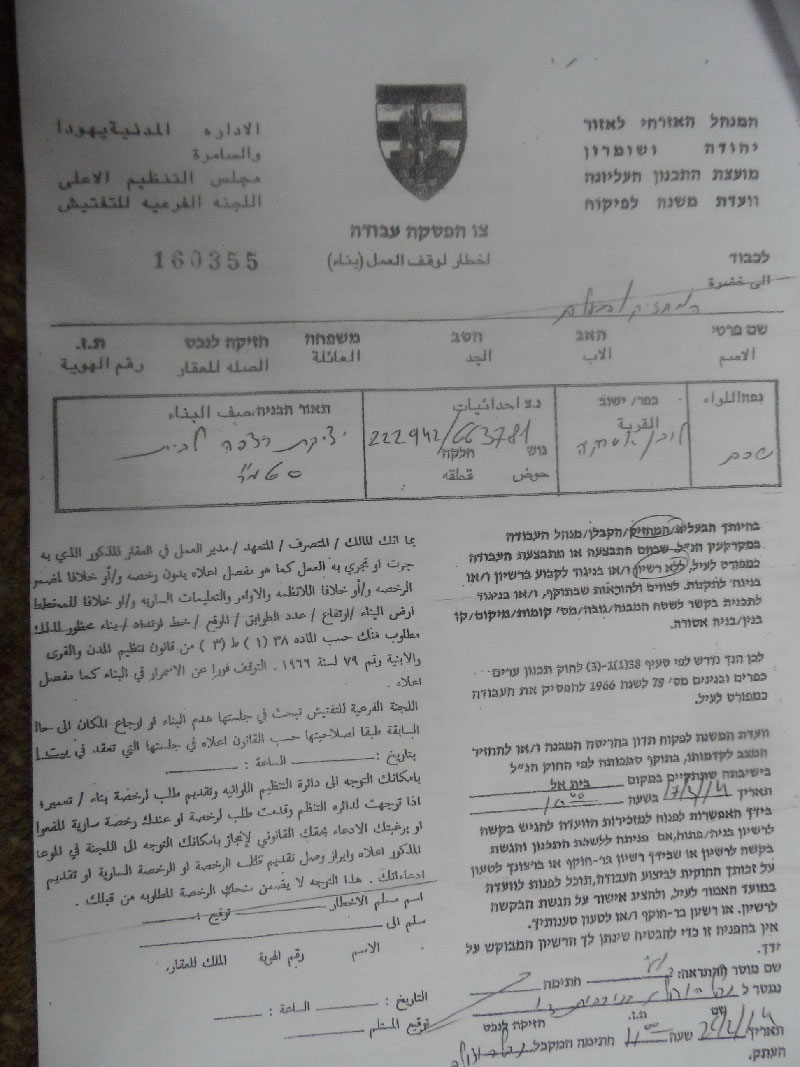 המנהל האזרחי לאזור
יהודה ושומרון
מועצת התכנון העליונה
וועדת משנה לפיקוח
الاداره المدنية يهودا
والسامرة
مجلس التنظيم الاعلى
اللجنه الفرعيه للتفتيش
צו הפסקה עבודה
اخطار لوقف العمل (بناء)
160355
לכבוד
الى حضرة
המחזיק/בעלים
שם פרטי האב הסב משפחה חזיקה לנכס ת.ז.
الاسم الاب الجد العائلة الصله للعقار رقم الهوية
נפה/اللواء
שכם
כפר/ ישוב
القرية
לובן א שרקיה
נ.צ احداثيات
222942/663781
גוש חלקה
حوض قطعه
תאור הבניה وصف البناء
יציקת רצפה לבית
בהיותך הבעלים/המחזיק/הקבלן/מנהל העבודה
במקרקעין הנ"ל שבהם התבצעה או מתבצעת העבודה
כמפורט לעיל, ללא רשיון ו/או בניגוד לקבוע ברשיון ו/או
בניגוד לתקנות, לצווים ולהוראות שבתוקף, ו/או בניגוד
לתכנית בקשר לשטח המבנה/גובה/מס' קומות/מיקום/קו
בנין/בניה אסורה.
לכן הנך נדרש לפי סעיף 38(1)ג-(3) לחוק תכנון ערים
כפרים ובנינים מס' 79 לשנת 1966 להפסיק את העבודה
כמפורט לעיל.
וועדת המשנה לפקוח תדון בהריסת המבנה ו/או להחזיר
המצב לקדמותו, בתוקף סמכותה לפי החוק הנ"ל
בישיבתה שתתקיים במקום בית אל
תאריך בשעה 10:00
בידך האפשרות לפנות למזכירות הוועדה להגיש בקשה
לרשיון בניה/פתוח, אם פניתה ללשכת התכנון והגשת
בקשה לרשיון או שבידך רשיון בר-תוקף או ברצונך לטעון
על זכותך החוקית לביצוע העבודה, תוכל לפנות לוועדה
במועד האמור לעיל, ולהציג אישור על הגשת הבקשה
לרשיון. או רשיון בר-תוקף ו/או לטעון טענותיך.
אין בהפניה זו כדי להבטיח שינתן לך הרשיון המבוקש על
ידך.
שם מוסר ההתראה: חתימה
נמסר ל
שם ת.ז. חזיקה לנכס
תאריך שעה חתימה המקבל
העתק.
بما انك المالك / المتصرف / المتعهد / مدير العمل في العقار المذكور الذي به
جرت او تجري به العمل كما هو مفصل اعلاه بدون رخصه و/أو خلافا لمضمو
الرخصه و/أو خلافا للانظمه والاوامر والتعليمات الساريه و/او خلافا للمخطط
ارض البناء / ارتفاع / عدد الطوابق / الموقع / خط ارتداد / بناء محظور لذلك
مطلوب منك حسب الماده ٣٨ (١) ط (٣) من قانون تنظيم المدن والقرى
والابنية رقم ٧٩ لسنة ١٩٦٦ . التوقف فورا عن الاستمرار في البناء كما مفصل
اعلاه .
اللجنة الفرعية للتفتيش تبحث في جلستها هدم البناء او ارجاع المكان الى حال
السابقة طبقا لصلاحيتها حسب القانون اعلاه في جلستها التي تعقد في بيت ا
بتاريخ : الساعة :
بامكانك التوجه الى دائرة التنظيم اللوائيه وتقديم طلب لرخصة بناء / تعمير؛
اذا توجهت لدائره التنظم وقدمت طلب لرخصة او عندك رخصة سارية المفعوا
او برغبتك الادعاء بحقك القانوني لإنجاز بامكانك التوجه الى اللجنة في الموعا
المذكور اعلاه وابراز وصل تقديم طلب الرخصة او الرخصة السارية او تقديم
ادعاءاتك . هذا التوجه لا يضمن منحك الرخصة المطلوبه من قبلك .
اسم مسلم الاخطار توقيع :
سلم الى
الاسم رقم الهوية المالك للعقار.
التاريخ : الساعة :
توقيع المستلم